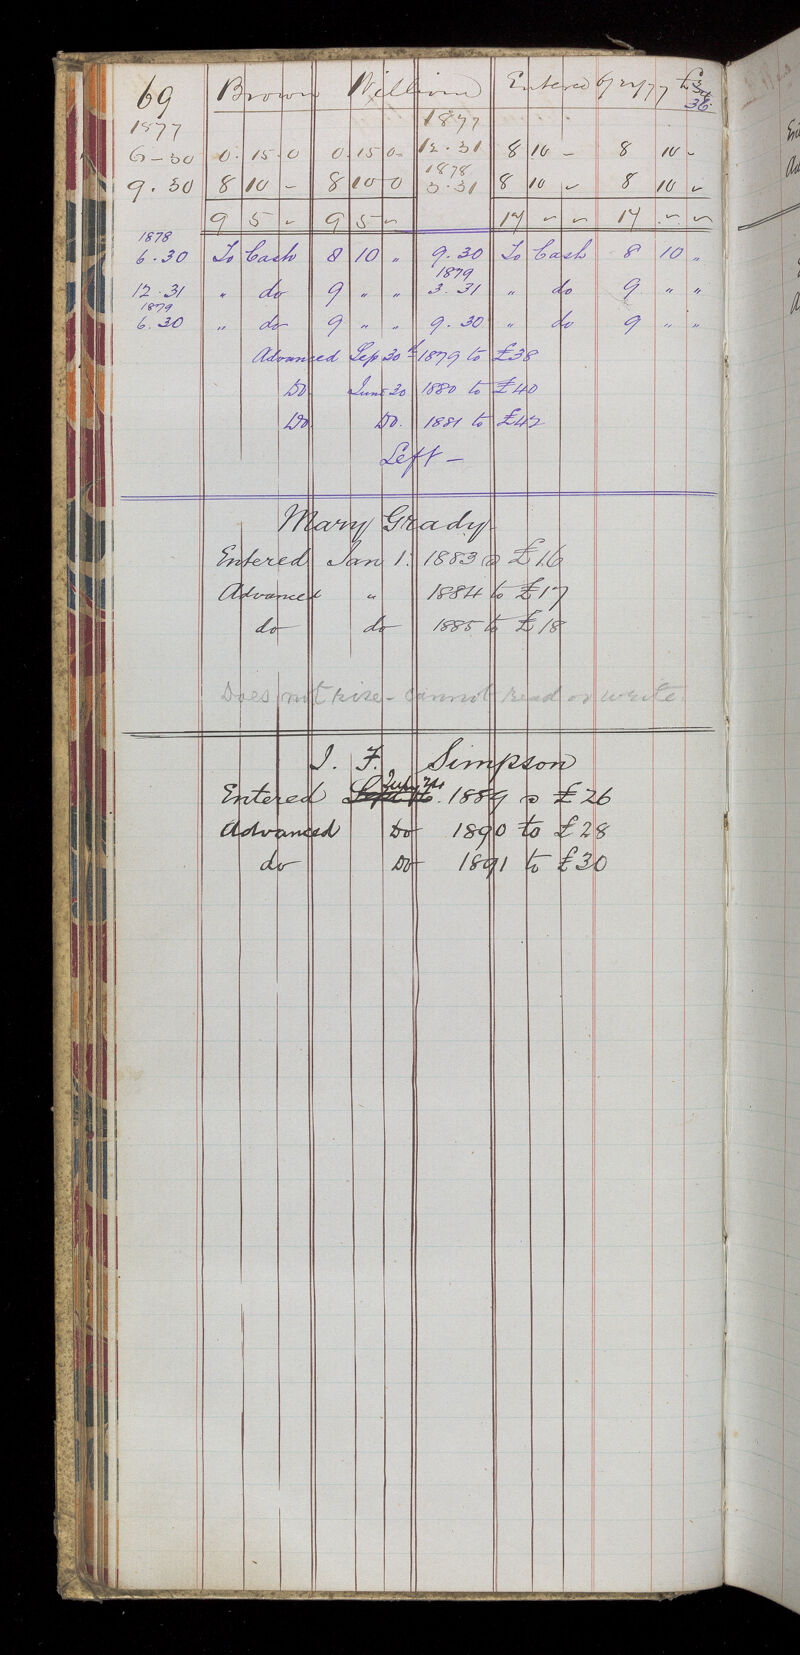 69 Brown William Entered 6/22/77 £
36
1877 1877
6-30 0. 15. 0 0. 15 0 12.31 8 10 - 8 10 -
1878
9.30 8 10 - 8 10 0 3.31 8 10 " 8 10 "
9 5 " 9 5 " 17 " " 17 " "
1878
6.30 To Cash 8 10 " 9.30 To Cash 8 10 "
1879
12.31 " do 9 " " 3.31 " do 9 " "
1879
6.30 " do 9 " " 9.30 " do 9 " "
Advanced Sep 30th 1879 to £38
Do. June 30 1880 to £40
Do. Do. 1881 to £42
Left -
Mary Grady
Entered Jan 1. 1883 @ £16
Advanced " 1884 to £17
do do 1885 to £18
Does not rise - cannot read or write.
J. F. Simpson
Entered July 1889 @ £26
Advanced Do 1890 to £28
do Do 1891 to £30